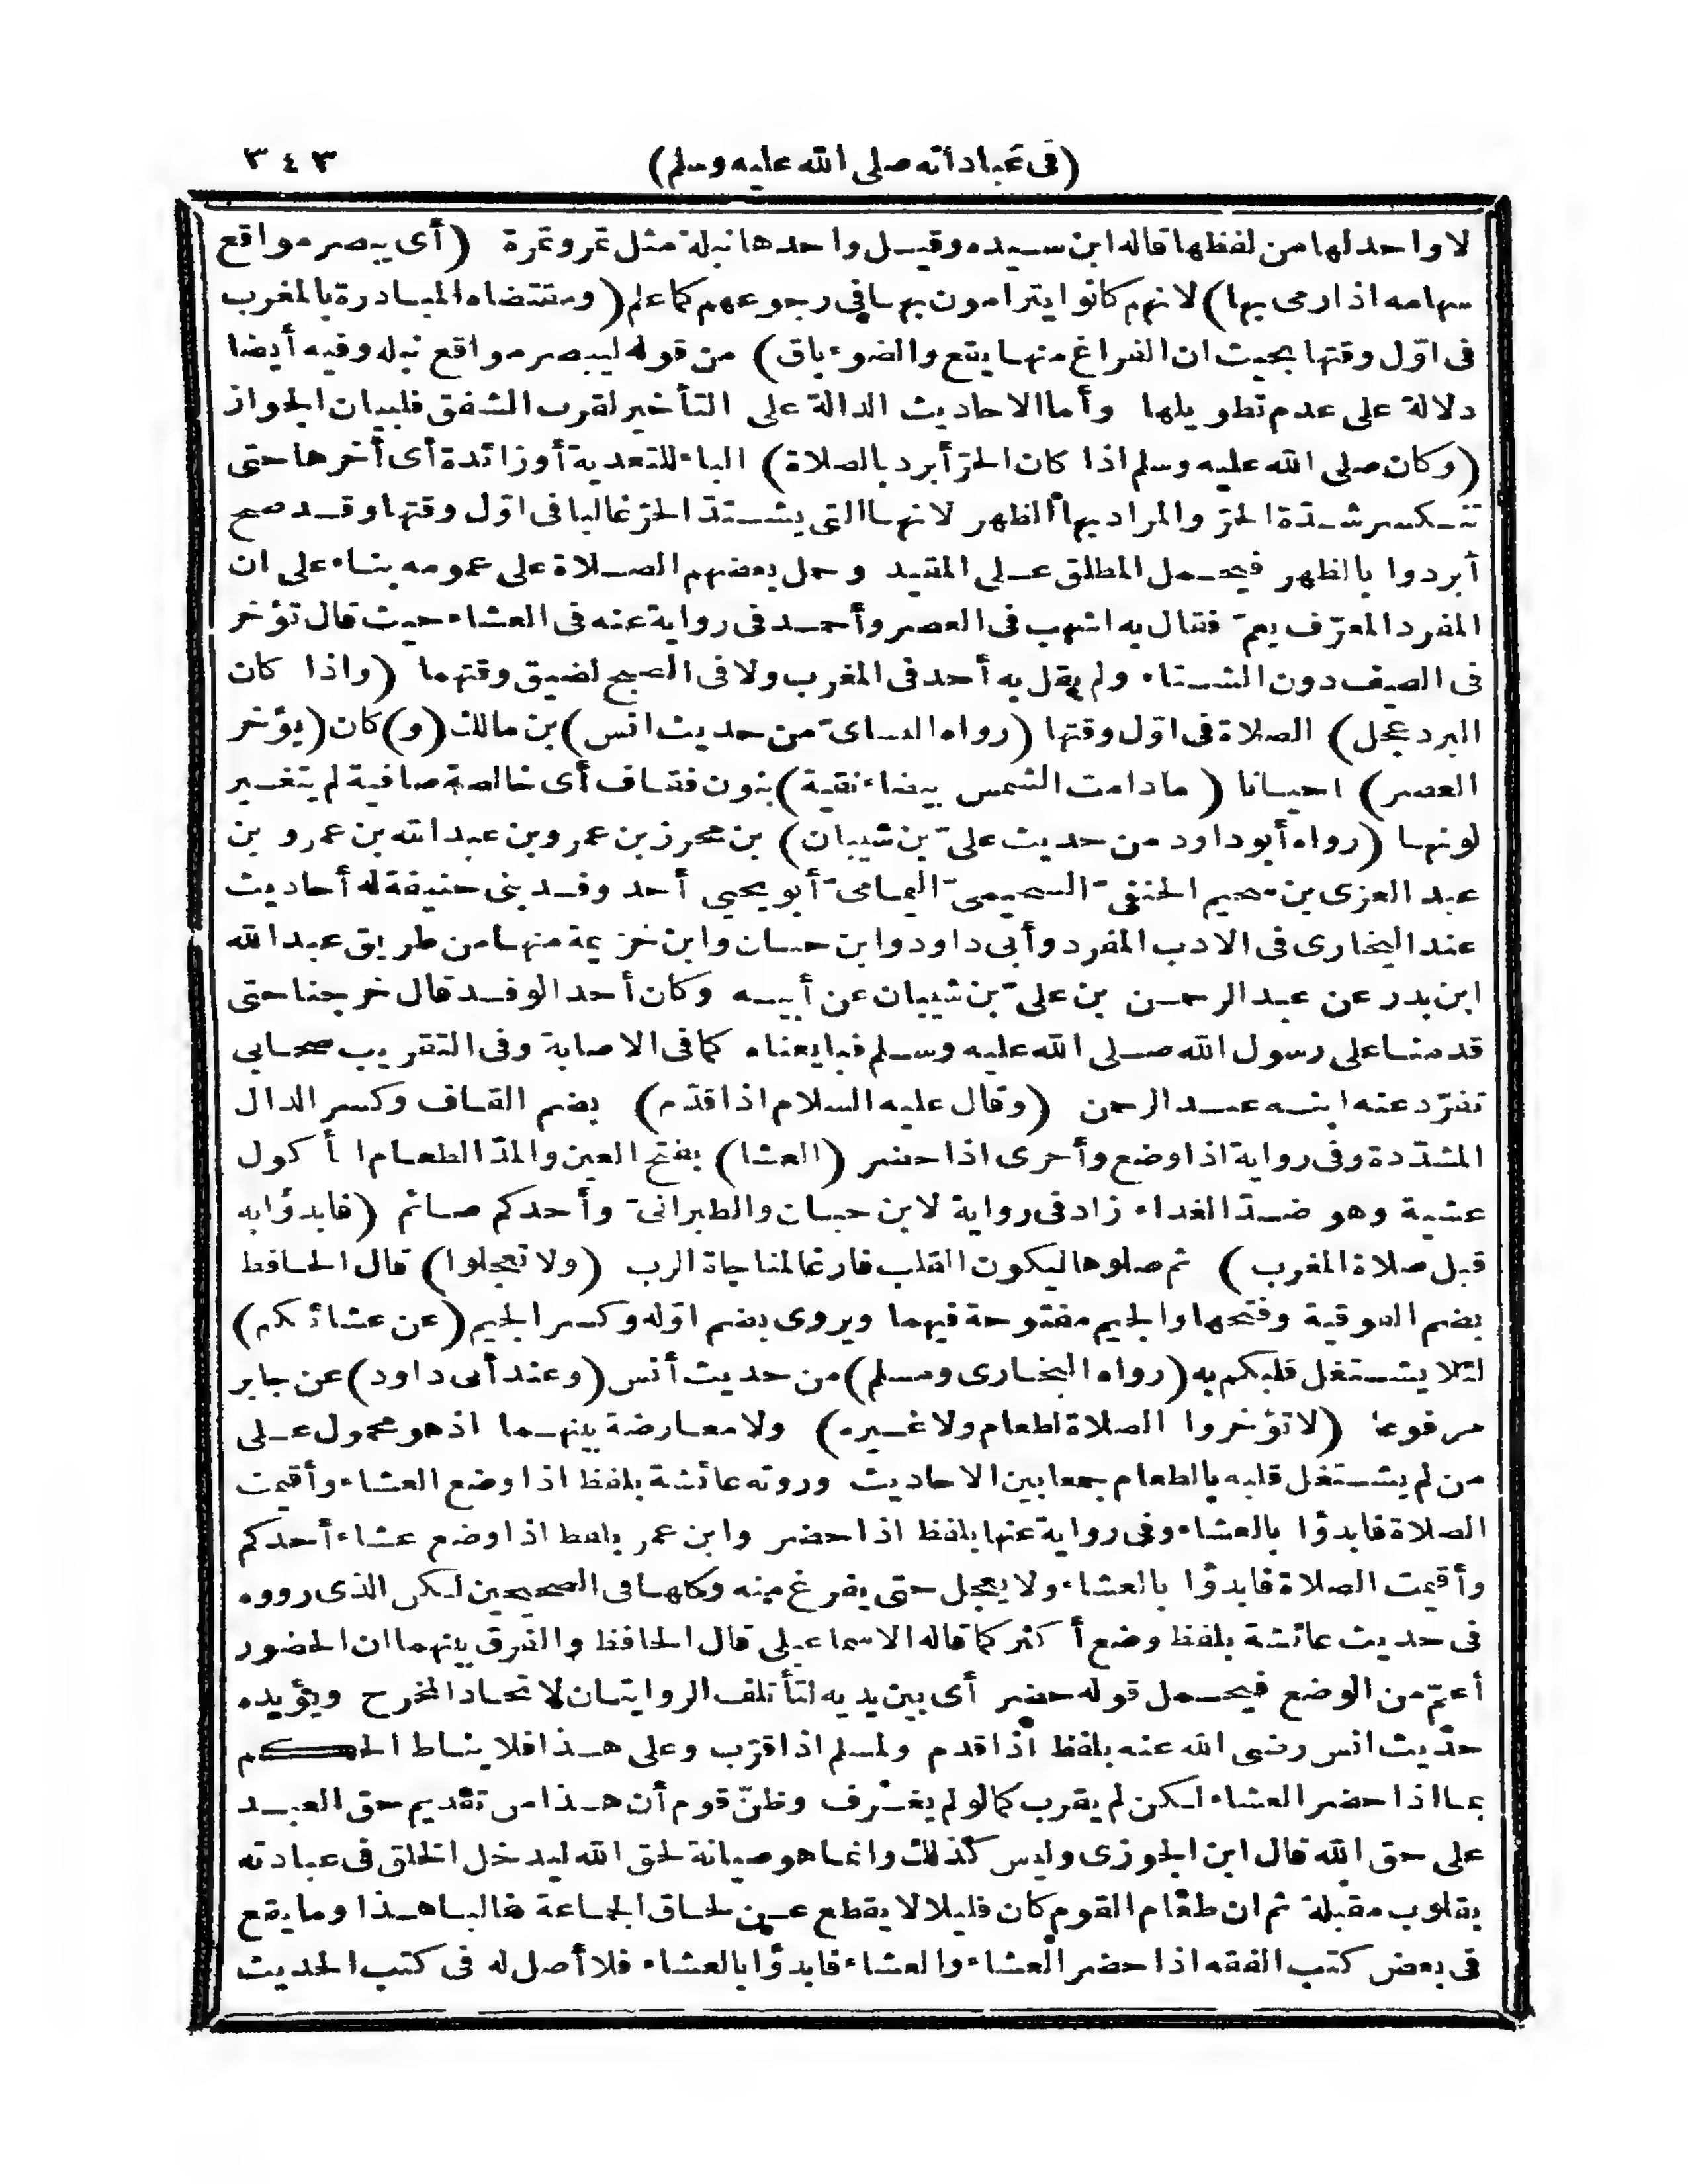 (فى عباداته صلى الله عليه وسلم) ٣٤٣
لا واحد لها من لفظها قاله ابن سيده وقيل واحدها نبلة مثل تمر وتمرة (أى يبصر مواقع
سهامه اذا رمى بها) لانهم كانوا يترامون بها فى رجوعهم كما علم (ومقتضاه المبادرة بالمغرب
فى اوّل وقتها بحيث ان الفراغ منها يقع والضوء باق) من قوله ليبصر مواقع نبله وفيه أيضا
دلالة على عدم تطويلها وأما الاحاديث الدالة على التأخير لقرب الشفق فلبيان الجواز
(وكان صلى الله عليه وسلم اذا كان الحرّ أبرد بالصلاة) الباء للتعدية أو زائدة أى أخرها حتى
تنكسر شدّة الحرّ والمراد بها الظهر لانها التى يشتدّ الحرّ غالبا فى اوّل وقتها وقد صح
أبردوا بالظهر فيحمل المطلق على المقيد وحمل بعضهم الصلاة على عمومه بناء على ان
المفرد المعرّف يعمّ فقال به اشهب فى العصر وأحمد فى رواية عنه فى العشاء حيث قال تؤخر
فى الصيف دون الشتاء ولم يقل به أحد فى المغرب ولا فى الصبح لضيق وقتهما (واذا كان
البرد عجل) الصلاة فى اوّل وقتها (رواه النساىّ من حديث انس) بن مالك (و) كان (يؤخر
العصر) احيانا (مادامت الشمس بيضاء نقية) بنون فقاف أى خالصة صافية لم يتغير
لونها (رواه أبو داود من حديث علىّ بن شيبان) بن محرز بن عمرو بن عبد الله بن عمرو بن
عبد العزى بن سحيم الحنفىّ السحيمىّ اليمامىّ أبو يحيى أحد وفد بنى حنيفة له أحاديث
عند البخارى فى الادب المفرد وأبى داود وابن حبان وابن خزيمة منها من طريق عبد الله
ابن بدر عن عبد الرحمن بن علىّ بن شيبان عن أبيه وكان أحد الوفد قال خرجنا حتى
قدمنا على رسول الله صلى الله عليه وسلم فبايعناه كما فى الاصابة وفى التقريب صحابى
تفرّد عنه ابنه عبد الرحمن (وقال عليه السلام اذا قدّم) بضم القاف وكسر الدال
المشدّدة وفى رواية اذا وضع وأخرى اذا حضر (العشا) بفتح العين والمدّ الطعام المأكول
عشية وهو ضدّ الغداء زاد فى رواية لابن حبان والطبرانىّ وأحدكم صائم (فابدؤا به
قبل صلاة المغرب) ثم صلوها ليكون القلب فارغا لمناجاة الرب (ولا تعجلوا) قال الحافظ
بضم الفوقية وفتحها والجيم مفتوحة فيهما ويروى بضم اوّله وكسر الجيم (عن عشائكم)
لئلا يشتغل قلبكم به (رواه البخارى ومسلم) من حديث أنس (وعند أبى داود) عن جابر
مرفوعا (لا تؤخروا الصلاة لطعام ولا غيره) ولا معارضة بينهما اذ هو محمول على
من لم يشتغل قلبه بالطعام جمعا بين الاحاديث وروته عائشة بلفظ اذا وضع العشاء وأقيمت
الصلاة فابدؤا بالعشاء وفى رواية عنها بلفظ اذا حضر وابن عمر بلفظ اذا وضع عشاء أحدكم
وأقيمت الصلاة فابدؤا بالعشاء ولا يعجل حتى يفرغ منه وكلها فى الصحيحين لكن الذى رووه
فى حديث عائشة بلفظ وضع أكثر كما قاله الاسماعيلى قال الحافظ والفرق بينهما ان الحضور
أعمّ من الوضع فيحمل قوله حضر أى بين يديه لتأتلف الروايتان لاتحاد المخرج ويؤيده
حديث انس رضى الله عنه بلفظ اذا قدم ولمسلم اذا قرّب وعلى هذا فلا يناط الحكم
بما اذا حضر العشاء لكن لم يقرب كما لو لم يغرف وظنّ قوم أن هذا من تقديم حق العبد
على حق الله قال ابن الجوزى وليس كذلك وانما هو صيانة لحق الله ليدخل الخلق فى عبادته
بقلوب مقبلة ثم ان طعام القوم كان قليلا لا يقطع عن لحاق الجماعة غالبا هذا وما يقع
فى بعض كتب الفقه اذا حضر العشاء والعشاء فابدؤا بالعشاء فلا أصل له فى كتب الحديث